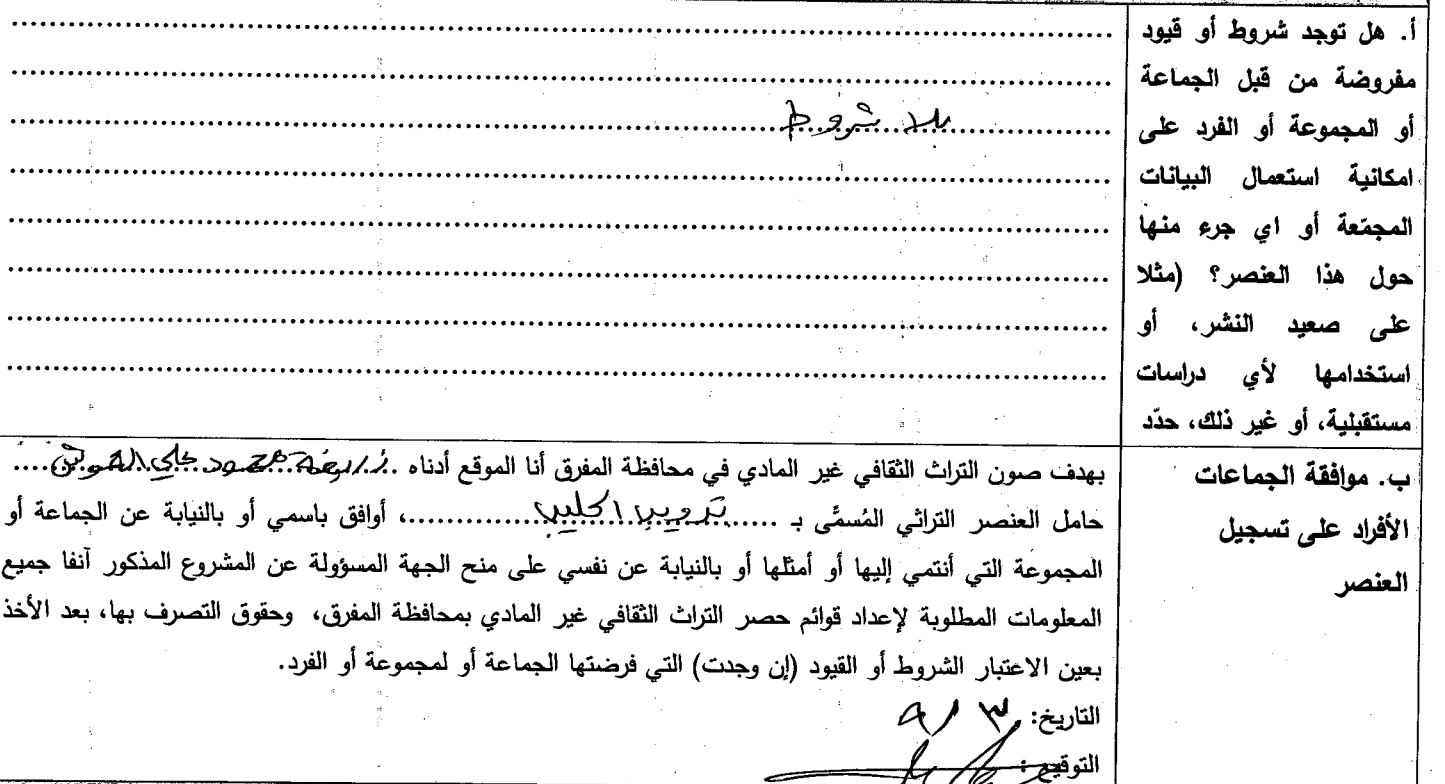 أ. هل توجد شروط أو قيود
مفروضة من قبل الجماعة
أو المجموعة أو الفرد على
امكانية استعمال البيانات
المجمّعة أو اي جرء منها
حول هذا العنصر؟ (مثلا
على صعيد النشر، أو
استخدامها لأي دراسات
مستقبلية، أو غير ذلك، حدّد
بلا شروط
ب. موافقة الجماعات
الأفراد على تسجيل
العنصر
بهدف صون التراث الثقافي غير المادي في محافظة المفرق أنا الموقع أدناه محمود علي
حامل العنصر التراثي المُسمَّى بـ ترويب الحليب، أوافق باسمي أو بالنيابة عن الجماعة أو
المجموعة التي أنتمي إليها أو أمثلها أو بالنيابة عن نفسي على منح الجهة المسؤولة عن المشروع المذكور آنفا جميع
المعلومات المطلوبة لإعداد قوائم حصر التراث الثقافي غير المادي بمحافظة المفرق، وحقوق التصرف بها، بعد الأخذ
بعين الاعتبار الشروط أو القيود (إن وجدت) التي فرضتها الجماعة أو لمجموعة أو الفرد.
التاريخ: ٣ / ٩
التوقيع: